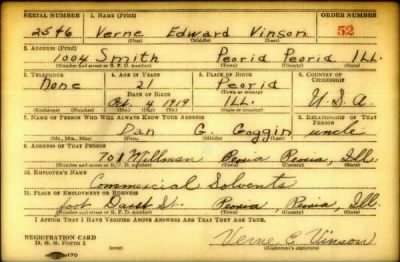 SERIAL NUMBER 1. NAME (Print) ORDER NUMBER
2546 Verne Edward Vinson 52
(First) (Middle) (Last)
2. ADDRESS (Print)
1004 Smith Peoria Peoria ILL.
(Number and street or R. F. D. number) (Town) (County) (State)
3. TELEPHONE 4. AGE IN YEARS 5. PLACE OF BIRTH 6. COUNTRY OF CITIZENSHIP
None 21 Peoria
DATE OF BIRTH (Town or county)
Oct. 4 1919 ILL. U.S.A.
(Exchange) (Number) (Mo.) (Day) (Yr.) (State or country)
7. NAME OF PERSON WHO WILL ALWAYS KNOW YOUR ADDRESS 8. RELATIONSHIP OF THAT PERSON
Dan G. Goggin uncle
(Mr., Mrs., Miss) (First) (Middle) (Last)
9. ADDRESS OF THAT PERSON
701 Millman Peoria Peoria, Ill.
(Number and street or R. F. D. number) (Town) (County) (State)
10. EMPLOYER'S NAME
Commercial Solvents
11. PLACE OF EMPLOYMENT OR BUSINESS
foot Darst St. Peoria, Peoria, Ill.
(Number and street or R. F. D. number) (Town) (County) (State)
I AFFIRM THAT I HAVE VERIFIED ABOVE ANSWERS AND THAT THEY ARE TRUE.
REGISTRATION CARD
D. S. S. Form 1 Verne E Vinson
(Registrant's signature)